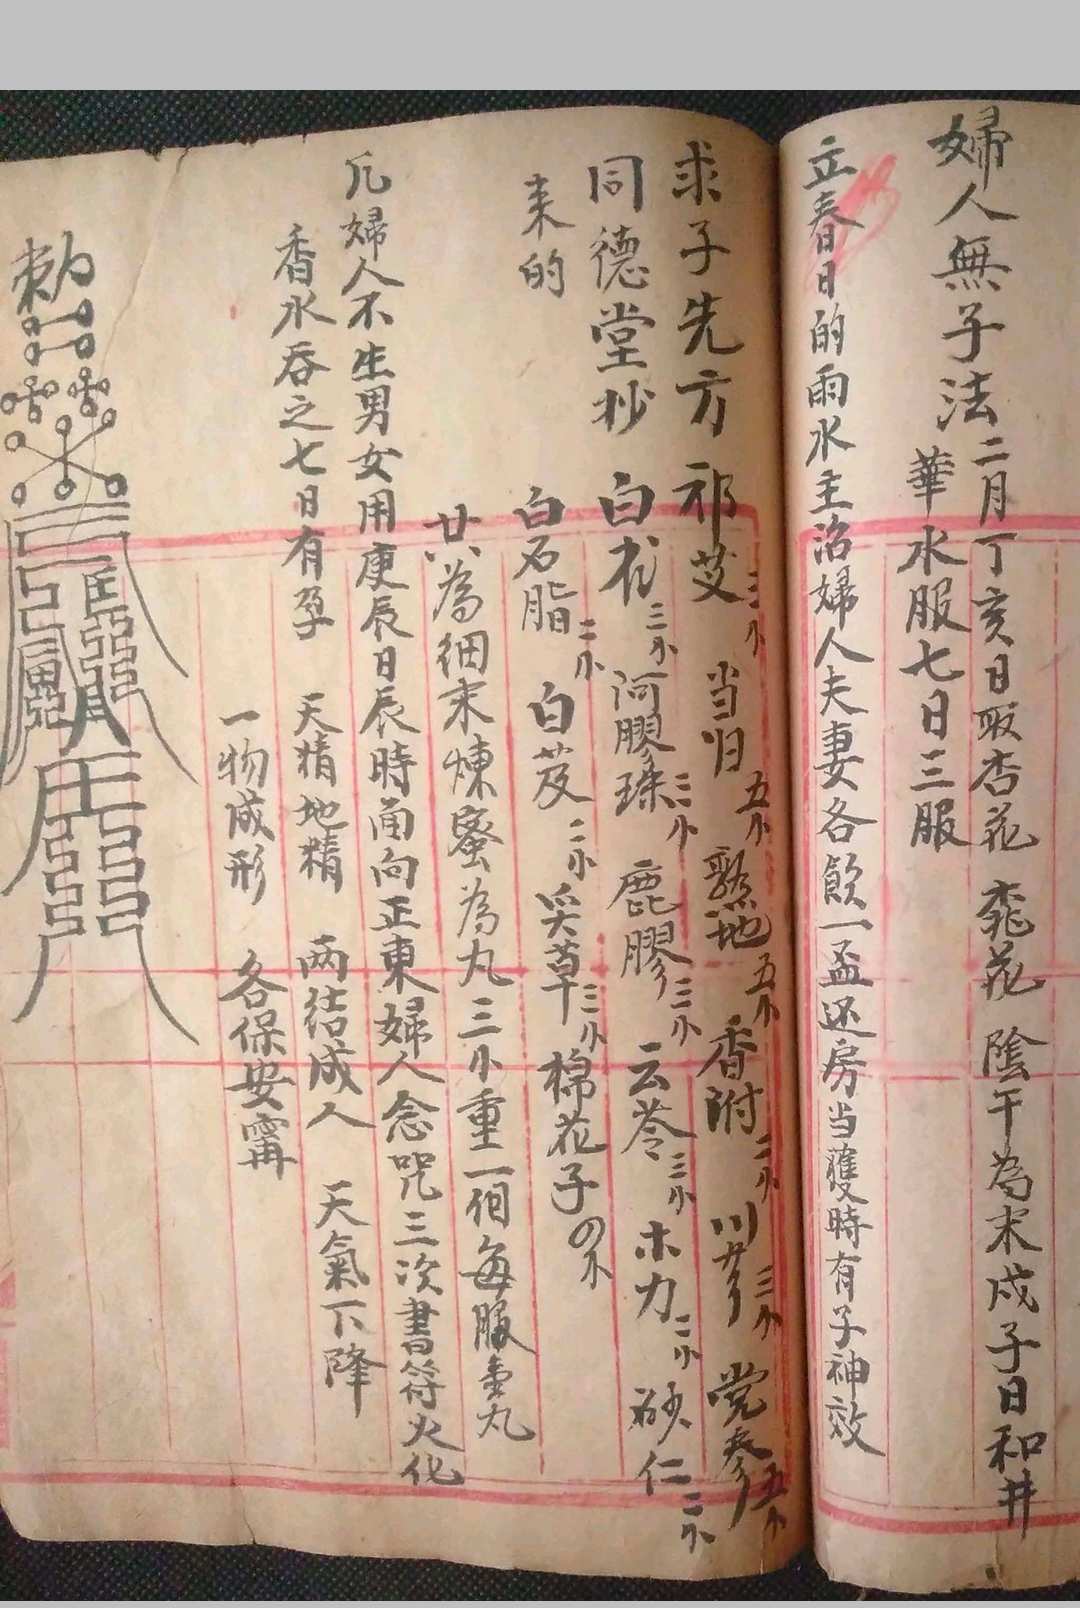 婦人無子法 二月丁亥日取杏花 桃花 陰干為末戍子日和井
華水服七日三服
立春日的雨水主治婦人夫妻各飲一盃还房当獲時有子神效
求子先方 祁艾三小 当归五小 熟地五小 香附二小 川芎三小 党参五小
同德堂抄 白朮三小 阿膠珠三小 鹿膠三小 云苓三小 木力二小 砂仁二小
来的 白石脂二小 白芨二小 草三小 棉花子
共為细末煉蜜為丸三小重一個每服壹丸
凡婦人不生男女用庚辰日辰時面向正東婦人念咒三次書符火化
香水吞之七日有孕 天精地精 两结成人 天氣下降
一物成形 各保安寧
勅